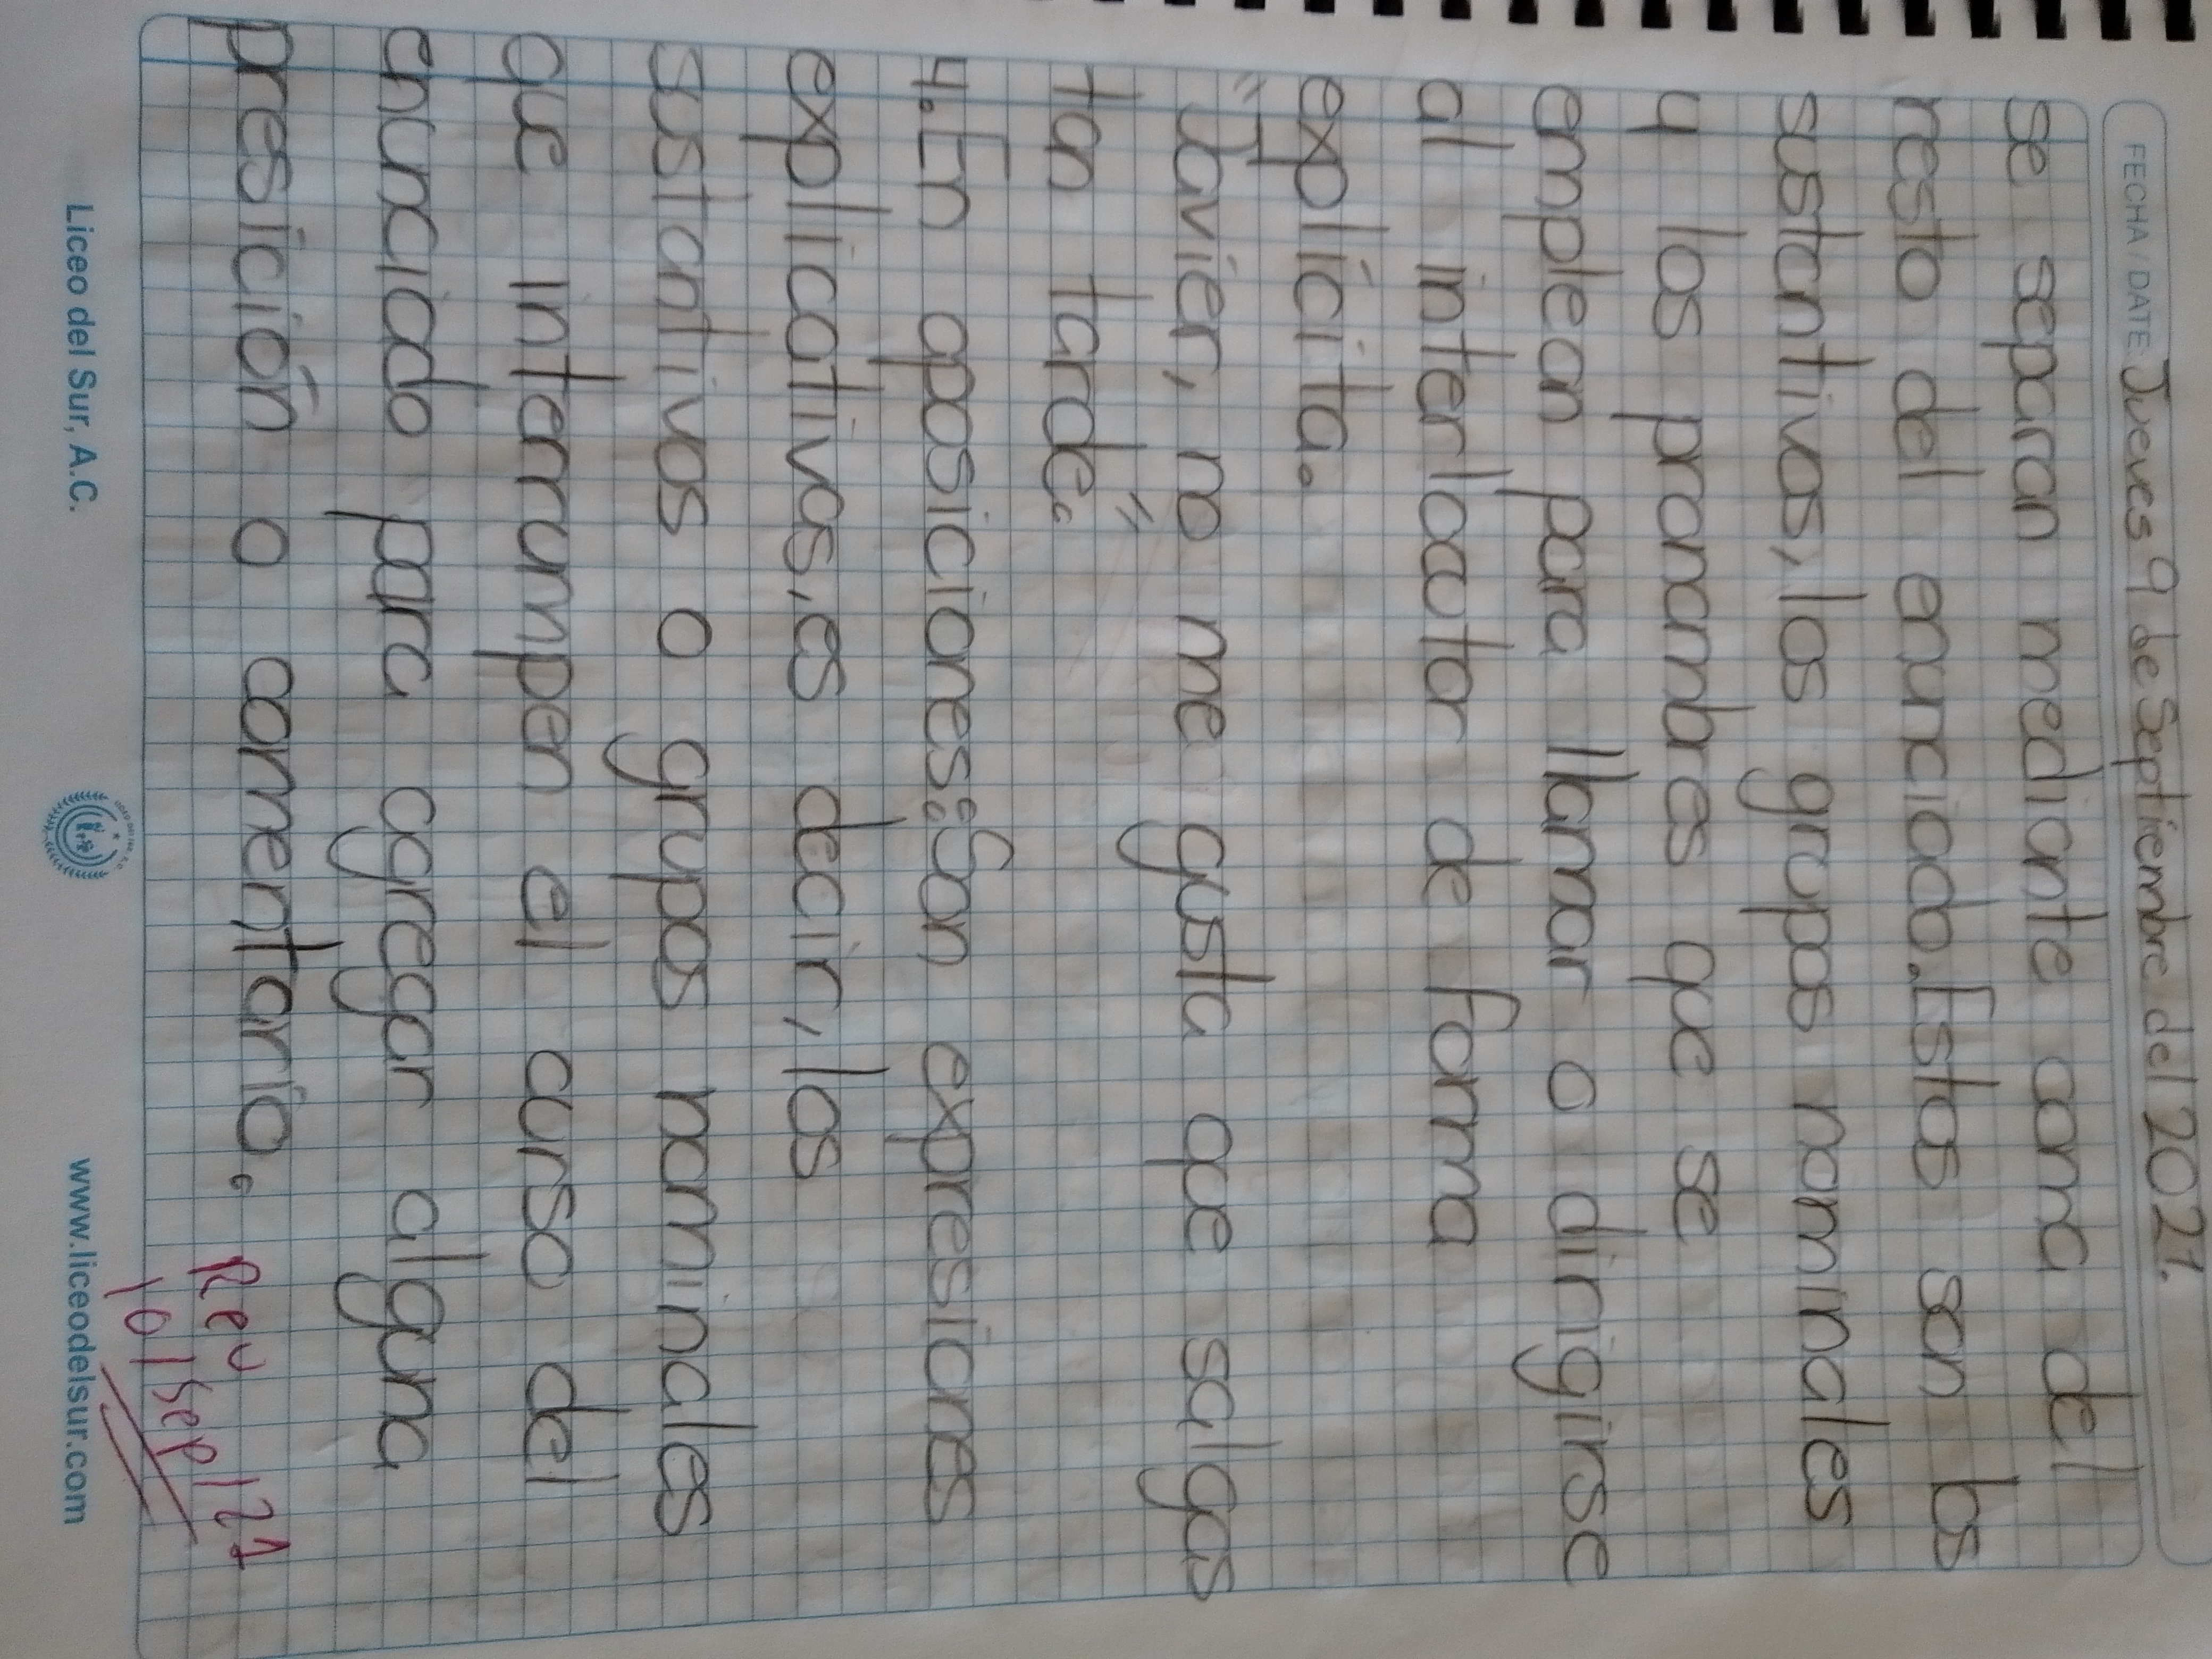 FECHA / DATE: Jueves 9 de Septiembre del 2021.
se separan mediante coma del
resto del enunciado. Estos son los
sustantivos, los grupos nominales
y los pronombres que se
emplean para llamar o dirigirse
al interlocutor de forma
explícita.
"Javier, no me gusta que salgas
tan tarde."
4. En aposiciones: Son expresiones
explicativas, es decir, los
sustantivos o grupos nominales
que interrumpen el curso del
enunciado para agregar alguna
presición o comentario.
Rev
10/sep/21
Liceo del Sur, A.C.
www.liceodelsur.com